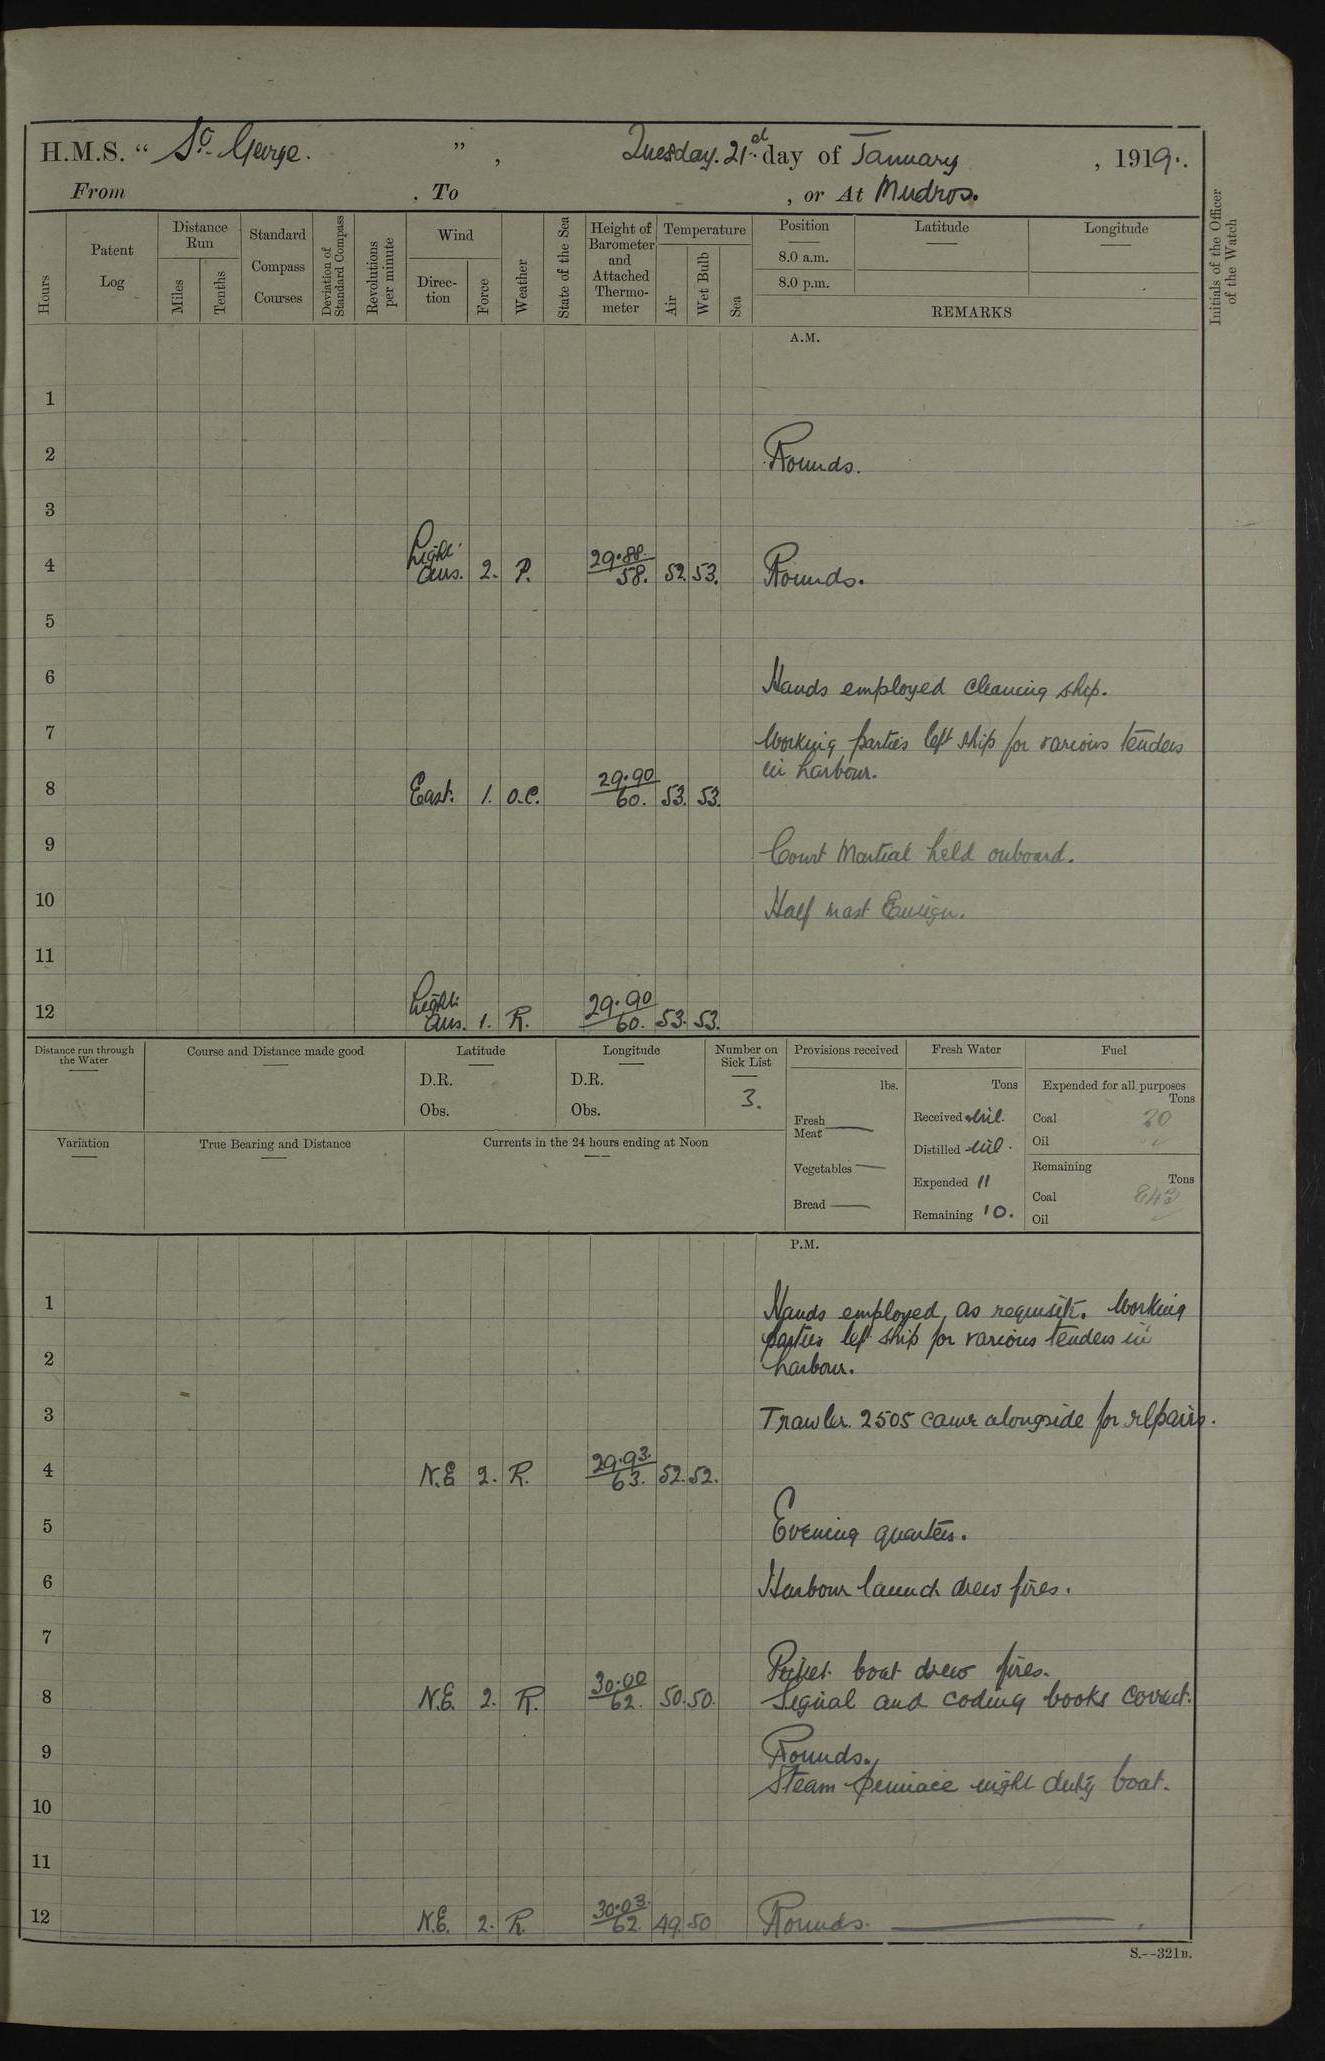 H.M.S. “ St. George. ” , Tuesday. 21st day of January , 1919.
From . To , or At Mudros.
Hours
Patent Log
Distance Run
Miles
Tenths
Standard Compass Courses
Deviation of Standard Compass
Revolutions per minute
Wind
Direction
Force
Weather
State of the Sea
Height of Barometer and Attached Thermometer
Temperature
Air
Wet Bulb
Sea
Position
8.0 a.m.
8.0 p.m.
Latitude
Longitude
REMARKS
Initials of the Officer of the Watch
A.M.
1
2 Rounds.
3
4 Light airs. 2. 29.88. 58. 52. 53. Rounds.
5
6 Hands employed cleaning ship.
7 Working parties left ship for various tenders
in harbour.
8 East. 1. o.c. 29.90 60. 53. 53.
9 Court Martial held onboard.
10 Half mast Ensign.
11
12 Light airs. 1. R. 29.90 60. 53. 53.
Distance run through the Water
Course and Distance made good
Latitude
D.R.
Obs.
Longitude
D.R.
Obs.
Number on Sick List
3.
Provisions received
lbs.
Fresh Meat
Vegetables
Bread
Fresh Water
Tons
Received Nil.
Distilled Nil.
Expended 11
Remaining 10.
Fuel
Expended for all purposes
Tons
Coal 20
Oil
Remaining
Tons
Coal 843
Oil
Variation
True Bearing and Distance
Currents in the 24 hours ending at Noon
P.M.
1 Hands employed, as requisite. Working
parties left ship for various tenders in
2 harbour.
3 Trawler. 2505 came alongside for repairs.
4 N.E 2. R. 29.93. 63. 52. 52.
5 Evening quarters.
6 Harbour launch drew fires.
7
Picket boat drew fires.
8 N.E. 2. R. 30.00 62. 50. 50. Signal and coding books correct.
9 Rounds.
Steam pinnace night duty boat.
10
11
12 N.E. 2. R. 30.03. 62. 49. 50 Rounds.
S.--321B.